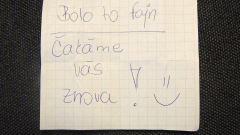 Bolo to fajn
Čakáme
Vás
znova ! :)